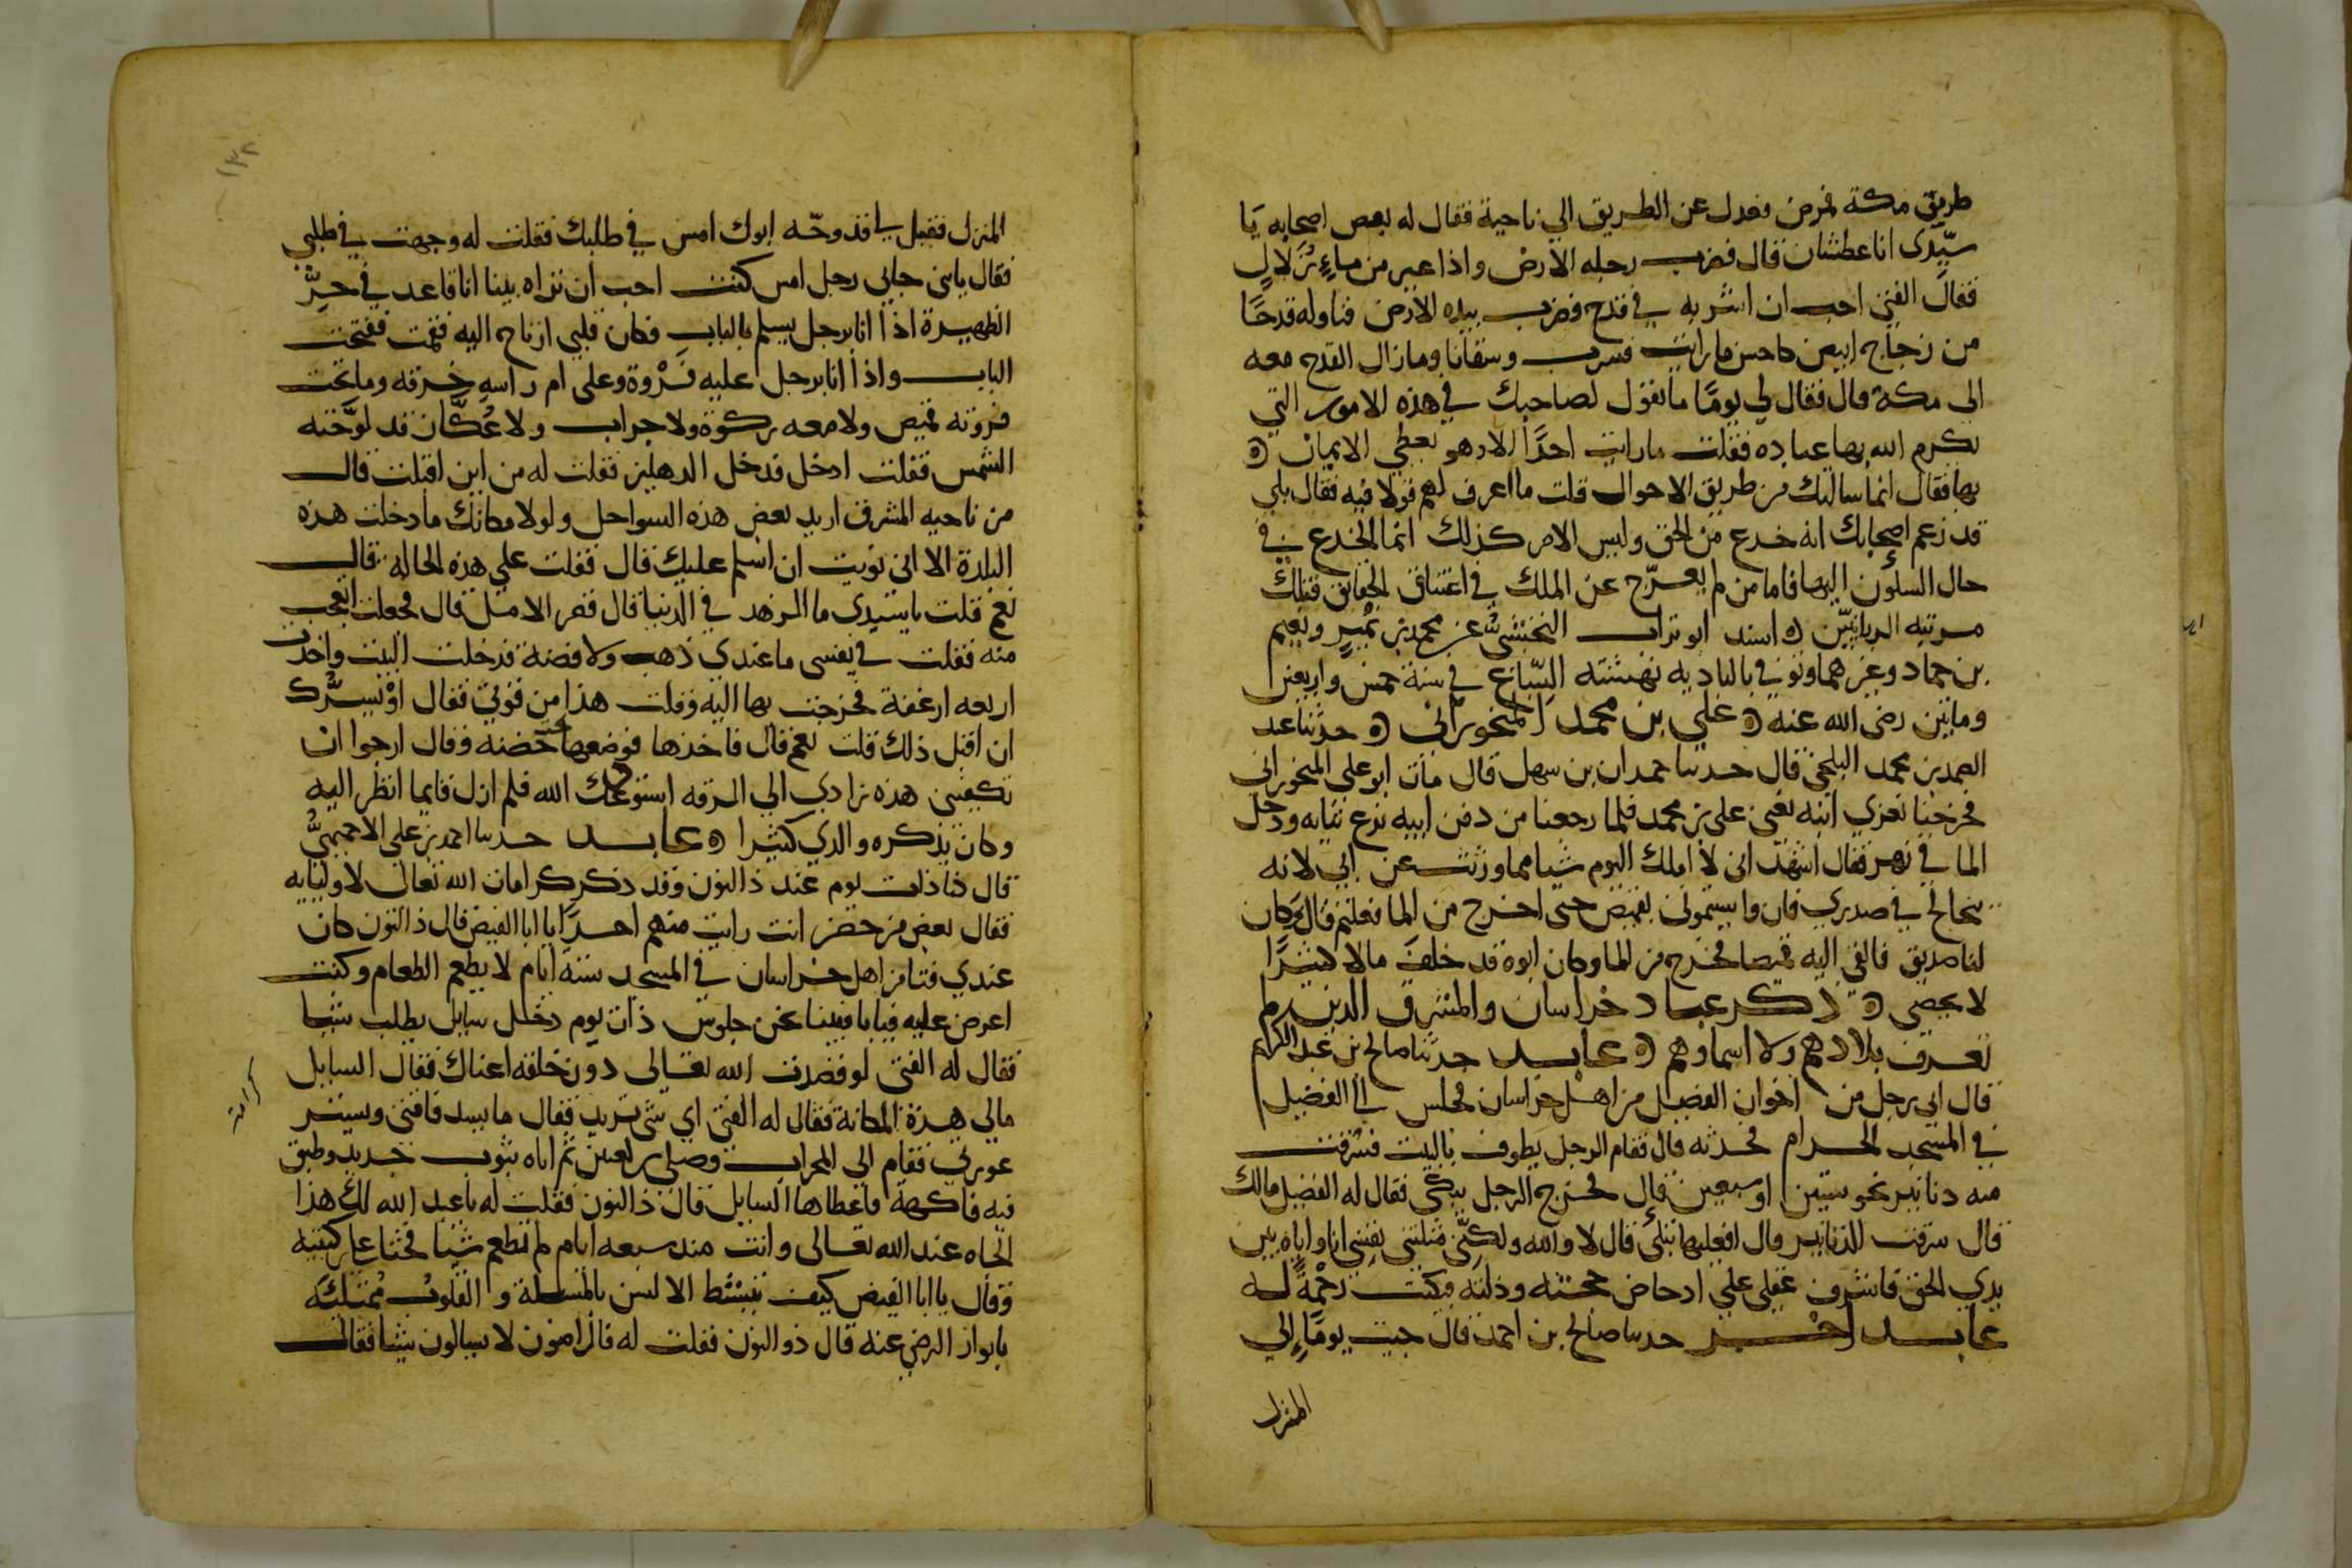 طريق مكة فمرض فعدل عن الطريق الي ناحية فقال له بعض اصحابه يَا
سيّدى انا عطشان قال فضرب رجله الارضْ واذا عين من ماءٍ زُلالٍ
فقال الفتى احب ان اشربه في قدح فضرب بيده الارض فناوله قدحًا
من زجاج ابيض كاحسن ما رايت فشرب وسقانا وما زال القدح معه
الى مكة قال فقال لي يومًا ما تقول لصاحبك في هذه الامور التي
يكرم الله بها عباده فقلت ما رايت احدًا الا وهو يعطي الايمان
بها فقال انما سالتك من طريق الاحوال قلت ما اعرف لهم قولا فيه فقال بلي
قد زعم اصحابك انه خدع من الحق وليس الامر كذلك انما الخدع في
حال السكون اليها فاما من لم يعرّج عن الملك في اعتناق الحقائق فتلك
مرتبه الربانيّين اسند ابو تراب النخشبي عن محمد بن نُمير ونعيم
بن حماد وغيرهما وتوفي بالباديه نهشته السّباع في سنة خمس واربعين
وماتين رضي الله عنه علي بن محمد المنجوراني حدثنا عبد
الصمد بن محمد البلخي قال حدثنا حمدان بن سهل قال مات ابو علي المنجوراني
فخرجنا نعزي ابنه يعني علي بن محمد فلما رجعنا من دفن ابيه نزع ثيابه ودخل
الما في نهر فقال اشهد اني لا املك اليوم شيا مما ورثت عن ابي لانه
تخالج في صدري فان واسيتموني بقميص حتى اخرج من الما فعلتم قال وكان
لنا صديق فالقى اليه قميصا فخرج من الما وكان ابوه قد خلف مالا كثيرًا
لا يحصى ذكر عباد خراسان والمشرق الذين لم
تعرف بلادهم ولا اسماوهم عابد حدثنا صالح بن عبد الكريم
قال اتى رجل من اخوان الفضيل من اهل خراسان فجلس الي الفضيل
في المسجد الحرام فحدثه قال فقام الرجل يطوف بالبيت فسرقت
منه دنانير نحو ستين او سبعين قال فخرج الرجل يبكى فقال له الفضيل مالك
قال سرقت الدنانير قال افعليها تبكى قال لا والله ولكنّي مثلتني نفسى انا واياه بين
يدي الحق فاشرف عقلى علي ادحاض حجته وذلته فبكيت رحمةً له
عابد اخر حدثنا صالح بن احمد قال جيت يومًا الي
المنزل
١٣٢
المنزل فقيل لي قد وجّه ابوك امس في طلبك فقلت له وجهت في طلبي
فقال يابني جاني رجل امس كنت احب ان تراه بينا انا قاعد في حرّ
الظهيرة اذا انا برجل يسلم بالباب فكان قلبي ارتاح اليه فقمت ففتحت
الباب واذا انا برجل عليه فَرْوة وعلى ام راسه خرقه وما تحت
فروته قميص ولا معه ركوة ولا جراب ولا عُكّاز قد لوّحته
الشمس فقلت ادخل فدخل الدهليز فقلت له من اين اقبلت قال
من ناحيه المشرق اريد بعض هذه السواحل ولولا مكانك ما دخلت هذه
البلدة الا انى نويت ان اسلم عليك قال فقلت علي هذه الحاله قال
نعم قلت ياسيدي ما الزهد في الدنيا قال قصر الامل قال فجعلت اتعجب
منه فقلت في نفسى ما عندي ذهب ولا فضة فدخلت البيت واخذت
اربعه ارغفة فخرجت بها اليه وقلت هذا من قوتي فقال اوْ يسرُّك
ان اقبل ذلك قلت نعم قال فاخذها فوضعها تحت حضنه وقال ارجوا ان
تكفيني هذه زادي الي الرقه استودعك الله فلم ازل قايما انظر اليه
وكان يذكره والدي كثيرا عابد حدثنا احمد بن علي الاخميميُّ
قال ذات يوم عند ذا النون وقد ذكر كرامات الله تعالى لاوليايه
فقال بعض من حضر انت رايت منهم احدًا يا ابا الفيض قال ذا النون كان
عندي فتا من اهل خراسان في المسجد سبعة ايام لا يطعم الطعام وكنت
اعرض عليه فيابا فبينا نحن جلوس ذات يوم دخل سايل يطلب شيا
فقال له الفتى لو قصدت الله تعالى دون خلقه اغناك فقال السايل
مالي هذة المكانة فقال له الفتى اي شي تريد فقال ما يسد فاقتى ويستر
عورتي فقام الى المحراب وصلى ركعتين ثم اتاه بثوب جديد وطبق
فيه فاكهة فاعطاها السايل قال ذا النون فقلت له يا عبد الله لك هذا
الجاه عند الله تعالى وانت منذ سبعه ايام لم تطعم شيا فجثا علي ركبتيه
وقال يا ابا الفيض كيف تنبسط الالسن بالمسالة والقلوب ممتلئة
بانوار الرضي عنه قال ذو النون فقلت له فالراضون لا يسالون شيا فقال
كرامة